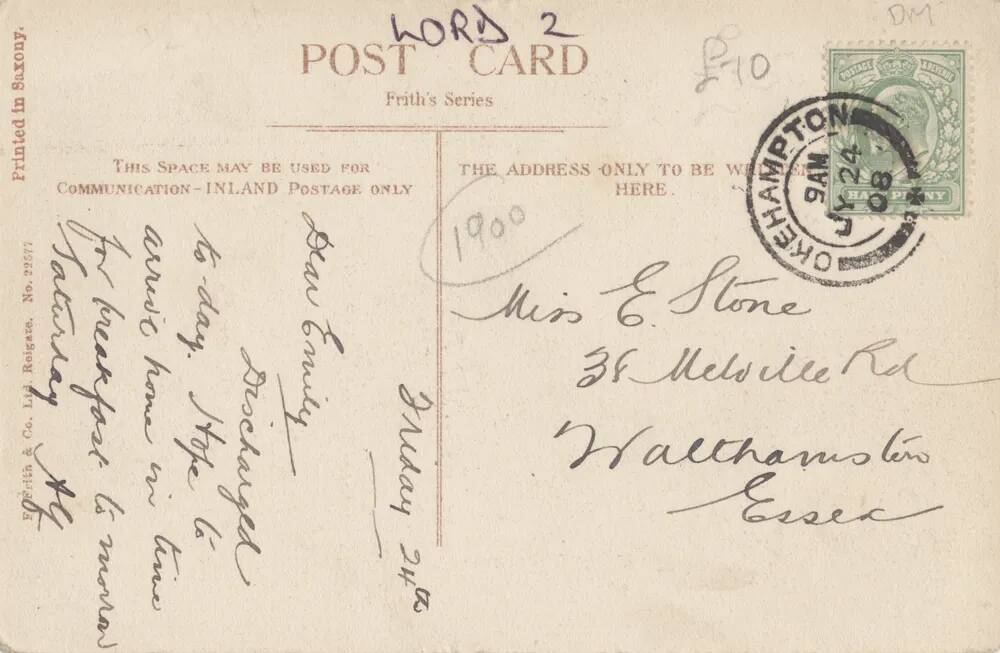 LORD 2
DM
£10
POST CARD
Frith's Series
Printed in Saxony.
F. Frith & Co. Ltd. Reigate. No. 22577
THIS SPACE MAY BE USED FOR
COMMUNICATION - INLAND POSTAGE ONLY
THE ADDRESS ONLY TO BE WRITTEN
HERE.
POSTAGE REVENUE
HALFPENNY
OKEHAMPTON
9 AM
JY 24
08
1900
Friday 24th
Dear Emily
Discharged
to-day. Hope to
arrive home in time
for breakfast to morrow
Saturday AG
Miss E. Stone
38 Melville Rd
Walthamstow
Essex